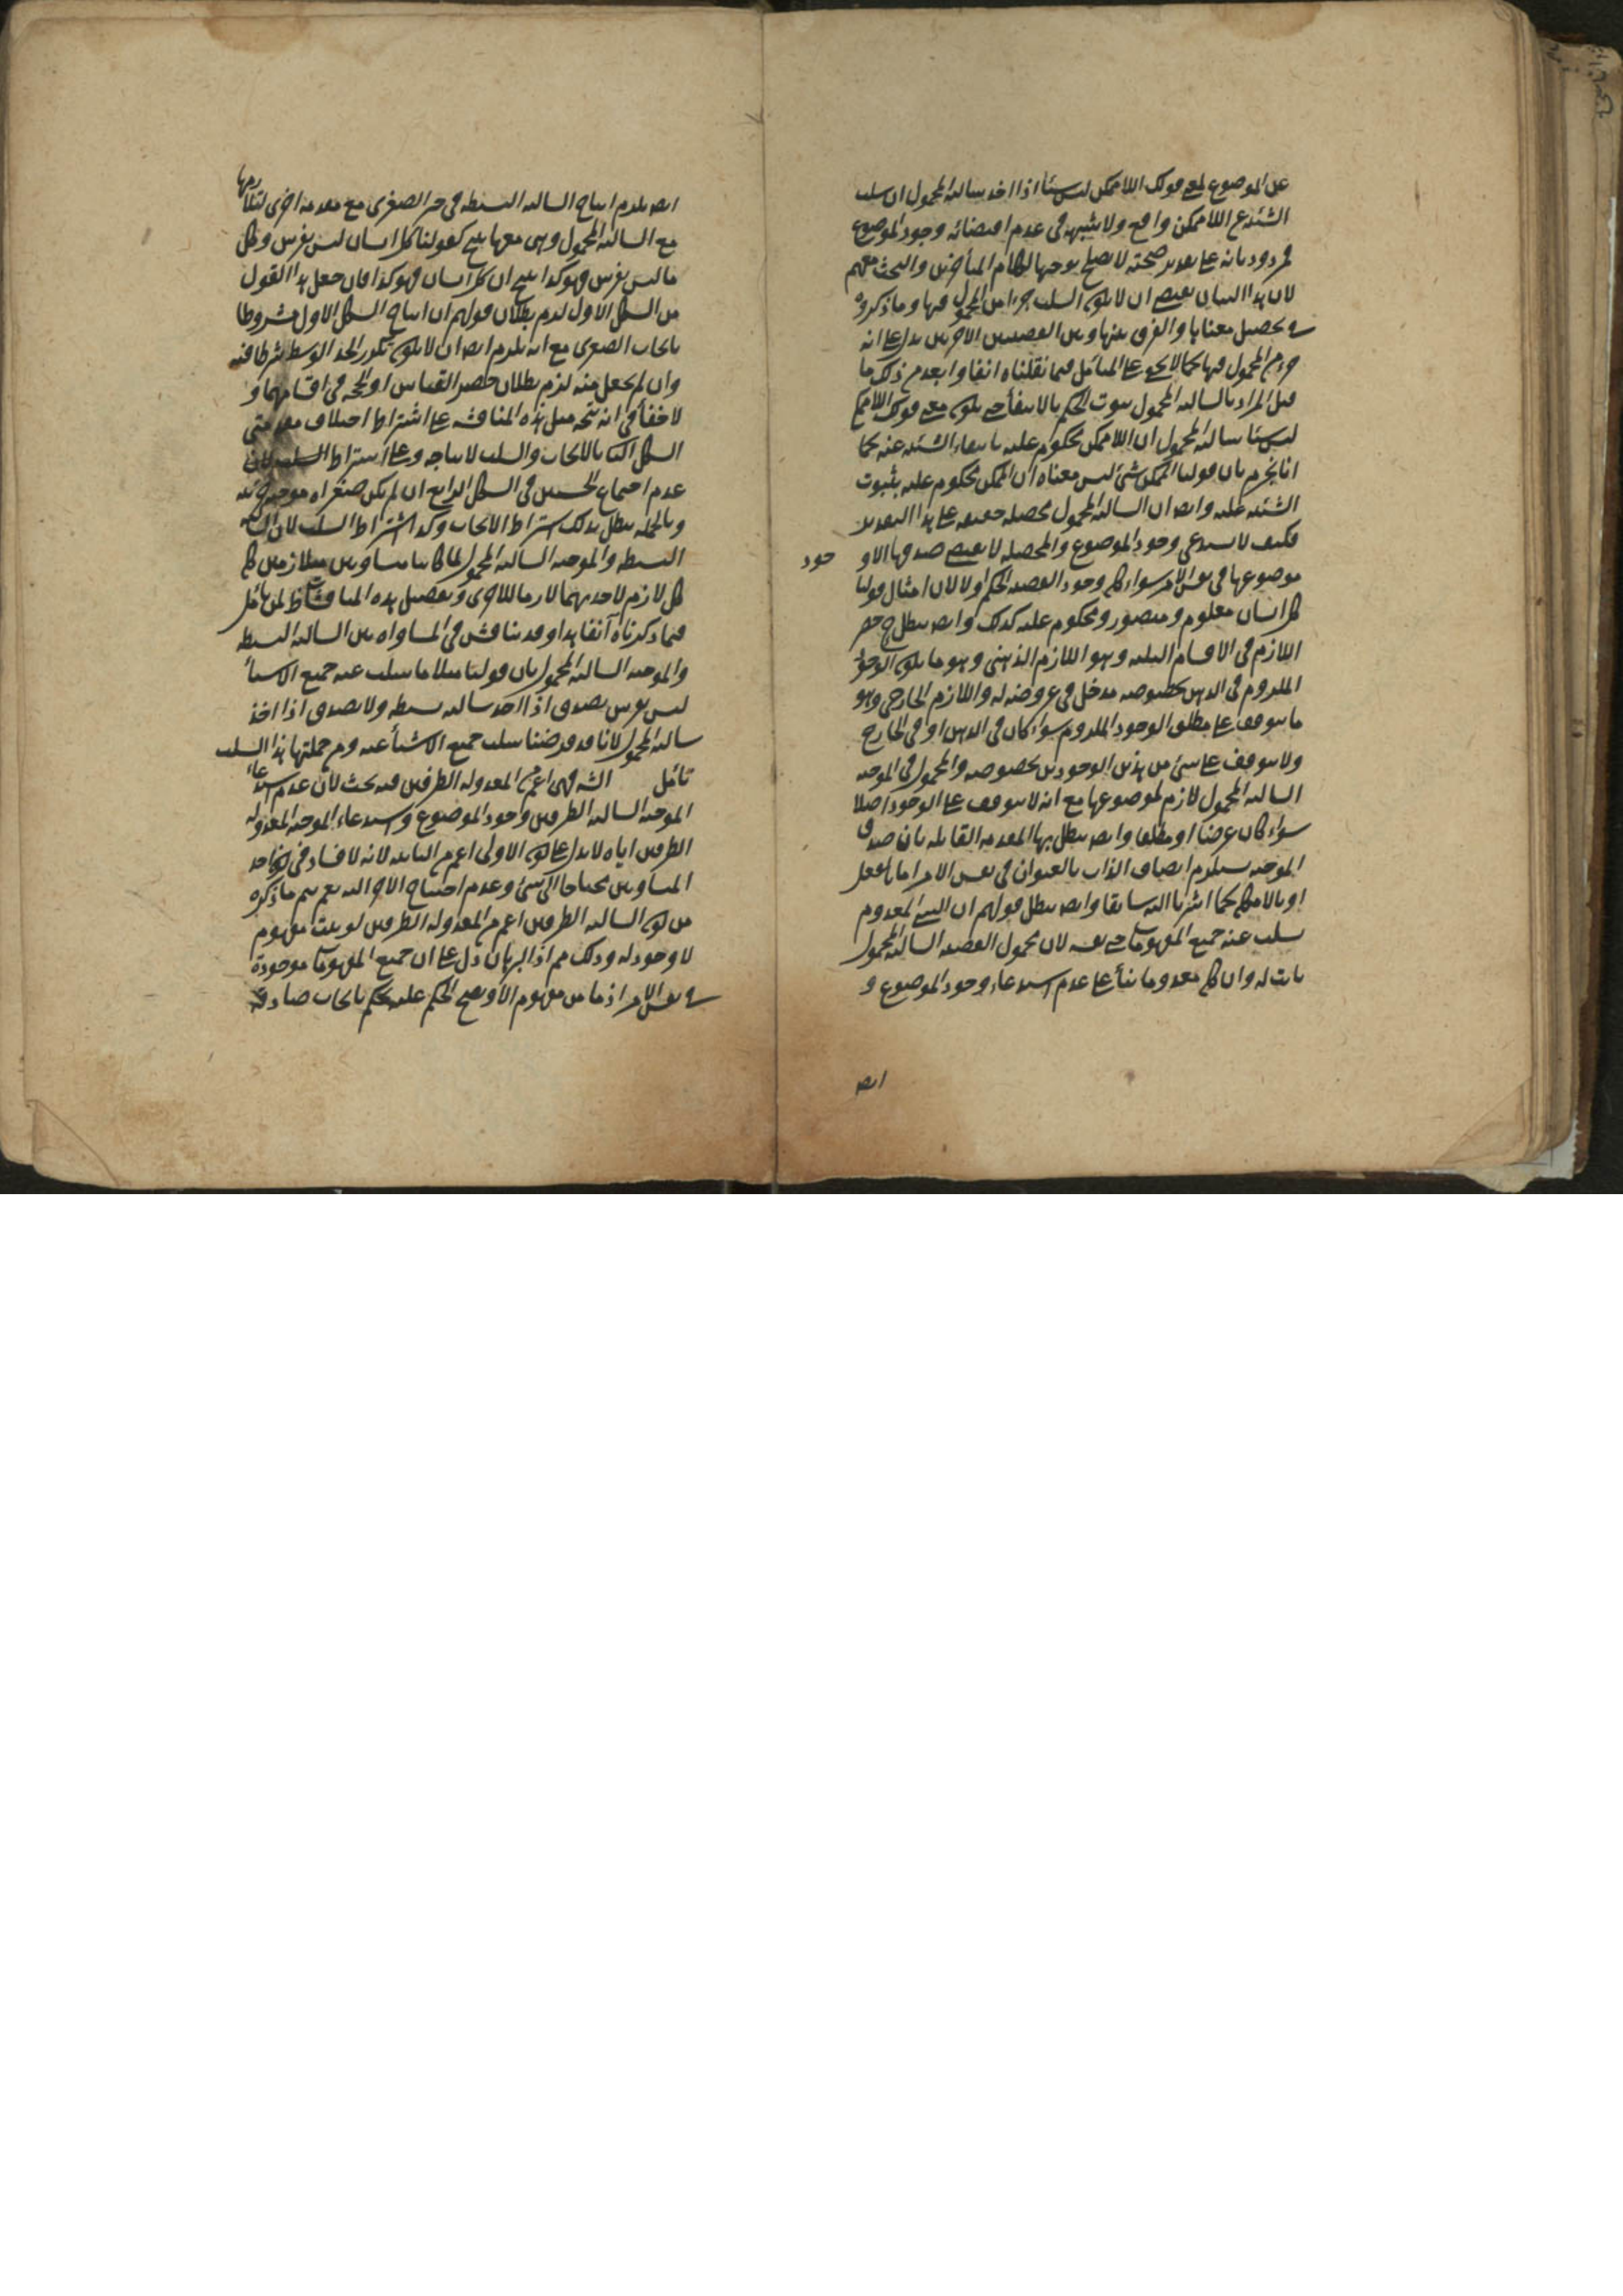 عن الموضوع فمعنى قولك اللاممكن ليس شيئا اذا اخذ سالبة المحمول ان سلب
الشيئية عن اللاممكن واقع ولا شبهة في عدم اقتضائه وجود الموضوع
فمردود بانه على تقدير صحته لا يصلح توجيها لكلام المتأخرين والبحث معهم
لان هذا البيان يقتضي ان لا يكون السلب جزءا من المحمول فيها وما ذكروه
في تحصيل معناها والفرق بينها وبين القضيتين الاخريين يدل على انه
جزء من المحمول فيها كما لا يخفى على المتأمل فيما نقلناه انفا وابعد من ذلك ما
قيل المراد بالسالبة المحمول ثبوت الحكم بالانتفاء حتى يكون معنى قولك اللاممكن
ليس شيئا سالبة المحمول ان اللاممكن محكوم عليه بانتفاء الشيئية عنه كما
انا نجزم بان قولنا الممكن شيء ليس معناه ان الممكن محكوم عليه بثبوت
الشيئية عليه وايضا ان السالبة المحمول محصلة حقيقة على هذا التقدير
فكيف لا يستدعي وجود الموضوع والمحصلة لا يقتضي صدقها الا وجود
موضوعها في نفس الامر سواء كان وجود القضية الحكم اولا لان امثال قولنا
كل انسان معلوم ومتصور ومحكوم عليه كذلك وايضا يبطل ح حصر
اللازم في الاقسام الثلثة وهو اللازم الذهني وهو ما يكون لوجود
الملزوم في الذهن بخصوصه مدخل في عروضه له واللازم الخارجي وهو
ما يتوقف على مطلق الوجود الملزوم سواء كان في الذهن او في الخارج
ولا يتوقف على شيء من هذين الوجودين بخصوصه والمحمول في الموجبة
السالبة المحمول لازم لموضوعها مع انه لا يتوقف على الوجود اصلا
سواء كان عرضا او مطلقا وايضا يبطل بها المقدمة القائلة بان صدق
الموجبة يستلزم اتصاف الذات بالعنوان في نفس الامر اما بالفعل
او بالامكان كما اشرنا اليه سابقا وايضا يبطل قولهم ان الشيء المعدوم
سلب عنه جميع المفهومات حتى نفسه لان محمول القضية السالبة المحمول
ثابت له وان كان معدوما بناء على عدم استدعاء وجود الموضوع و
ايضا
ايضا يلزم انتاج السالبة البسيطة في حيز الصغرى مع مقدمة اخرى لتلازمها
مع السالبة المحمول وهي معها ينتج كقولنا كل انسان ليس بفرس وكل
ما ليس بفرس فهو كذا ينتج ان كل انسان فهو كذا فان جعل هذا القول
من الشكل الاول لزم بطلان قولهم ان انتاج الشكل الاول مشروط
بايجاب الصغرى مع انه يلزم ايضا ان لا يكون تكرر الحد الاوسط شرطا فيه
وان لم يجعل منه لزم بطلان حصر القياس او الحجة في اقسامهما و
لا خفاء في انه يتجه مثل هذه المناقشة على اشتراط اختلاف مقدمتي
الشكل الثاني بالايجاب والسلب لانتاجه وعلى اشتراط السلب لان
عدم اجتماع الخستين في الشكل الرابع ان لم يكن صغراه موجبة جزئية
وبالجملة يبطل بذلك اشتراط الايجاب وكذا اشتراط السلب لان السالبة
البسيطة والموجبة السالبة المحمول لما كانتا متساويتين متلازمتين كان
كل لازم لاحديهما لازما للاخرى وتفصيل هذه المناقشات ظ لمن تأمل
فيما ذكرناه آنفا هذا وقد يناقش في المساواة بين السالبة البسيطة
والموجبة السالبة المحمول بان قولنا مثلا ما سلب عنه جميع الاشياء
ليس بفرس يصدق اذا اخذ سالبة بسيطة ولا يصدق اذا اخذ
سالبة المحمول لانا قد فرضنا سلب جميع الاشياء عنه ومن جملتها هذا السلب
تأمل الثه فهي اعم من المعدولة الطرفين فيه بحث لان عدم استدعاء
الموجبة السالبة الطرفين وجود الموضوع واستدعاء الموجبة المعدولة
الطرفين اياه لا يدل على كون الاولى اعم من الثانية لانه لا فساد في كون احد
المتساويين محتاجا الى شيء وعدم احتياج الاخر اليه نعم يتم ما ذكره
من كون السالبة الطرفين اعم من المعدولة الطرفين لو ثبت مفهوم
لا وجود له وذلك مم اذ البرهان دل على ان جميع المفهومات موجودة
في نفس الامر اذ ما من مفهوم الا ويصح الحكم عليه بحكم بايجاب صادق